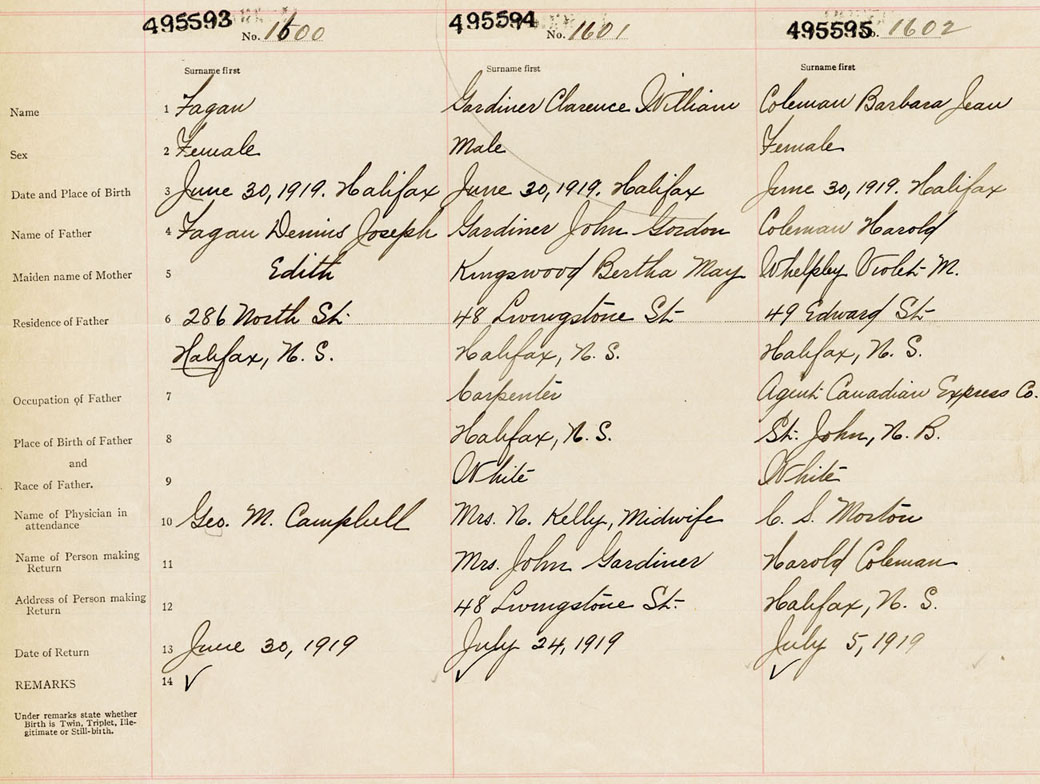 495593 No. 1600 495594 No. 1601 495595 No. 1602
Surname first Surname first Surname first
Name 1 Fagan Gardiner Clarence William Coleman Barbara Jean
Sex 2 Female Male Female
Date and Place of Birth 3 June 30, 1919. Halifax June 30, 1919. Halifax June 30, 1919. Halifax
Name of Father 4 Fagan Dennis Joseph Gardiner John Gordon Coleman Harold
Maiden name of Mother 5 Edith Kingswood Bertha May Whelpley Violet M.
Residence of Father 6 286 North St. 48 Livingstone St. 49 Edward St.
Halifax, N. S. Halifax, N. S. Halifax, N. S.
Occupation of Father 7 Carpenter Agent Canadian Express Co.
Place of Birth of Father 8 Halifax, N. S. St. John, N. B.
and
Race of Father. 9 White White
Name of Physician in attendance 10 Geo. M. Campbell Mrs. N. Kelly, Midwife C. S. Morton
Name of Person making Return 11 Mrs. John Gardiner Harold Coleman
Address of Person making Return 12 48 Livingstone St. Halifax, N. S.
Date of Return 13 June 30, 1919 July 24, 1919 July 5, 1919
REMARKS 14 ✓ ✓ ✓
Under remarks state whether
Birth is Twin, Triplet, Ille-
gitimate or Still-birth.